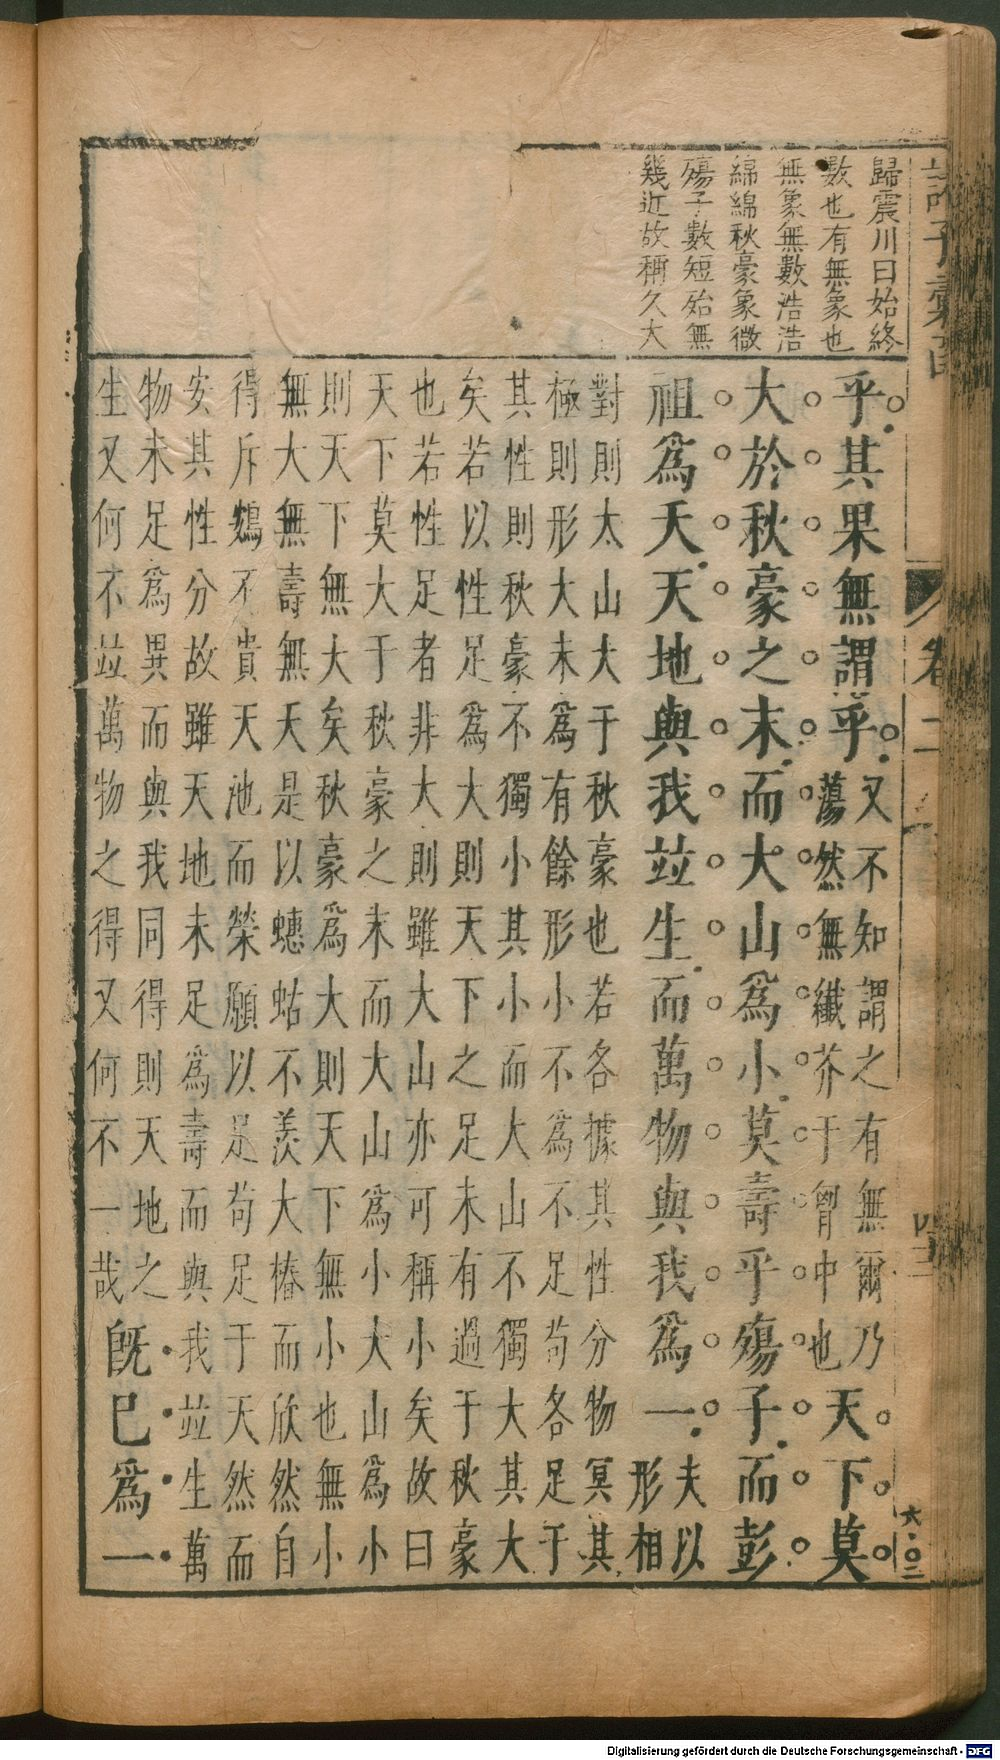 歸震川曰始終
數也有無象也
無象無數浩浩
綿綿秋豪象微
殤子數短殆無
幾近故稱久大
乎其果無謂乎
又不知謂之有無爾乃
蕩然無纖芥于胷中也
天下莫
大於秋豪之末而大山爲小莫壽乎殤子而彭
祖爲夭天地與我竝生而萬物與我爲一
夫以
形相
對則太山大于秋豪也若各據其性分物冥其
極則形大未爲有餘形小不爲不足苟各足于
其性則秋豪不獨小其小而大山不獨大其大
矣若以性足爲大則天下之足未有過于秋豪
也若性足者非大則雖大山亦可稱小矣故曰
天下莫大于秋豪之末而大山爲小大山爲小
則天下無大矣秋豪爲大則天下無小也無小
無大無壽無夭是以蟪蛄不羨大椿而欣然自
得斥鷃不貴天池而榮願以足苟足于天然而
安其性分故雖天地未足爲壽而與我竝生萬
物未足爲異而與我同得則天地之
生又何不竝萬物之得又何不一哉
既已爲一
卷二
六〇二
Digitalisierung gefördert durch die Deutsche Forschungsgemeinschaft - DFG